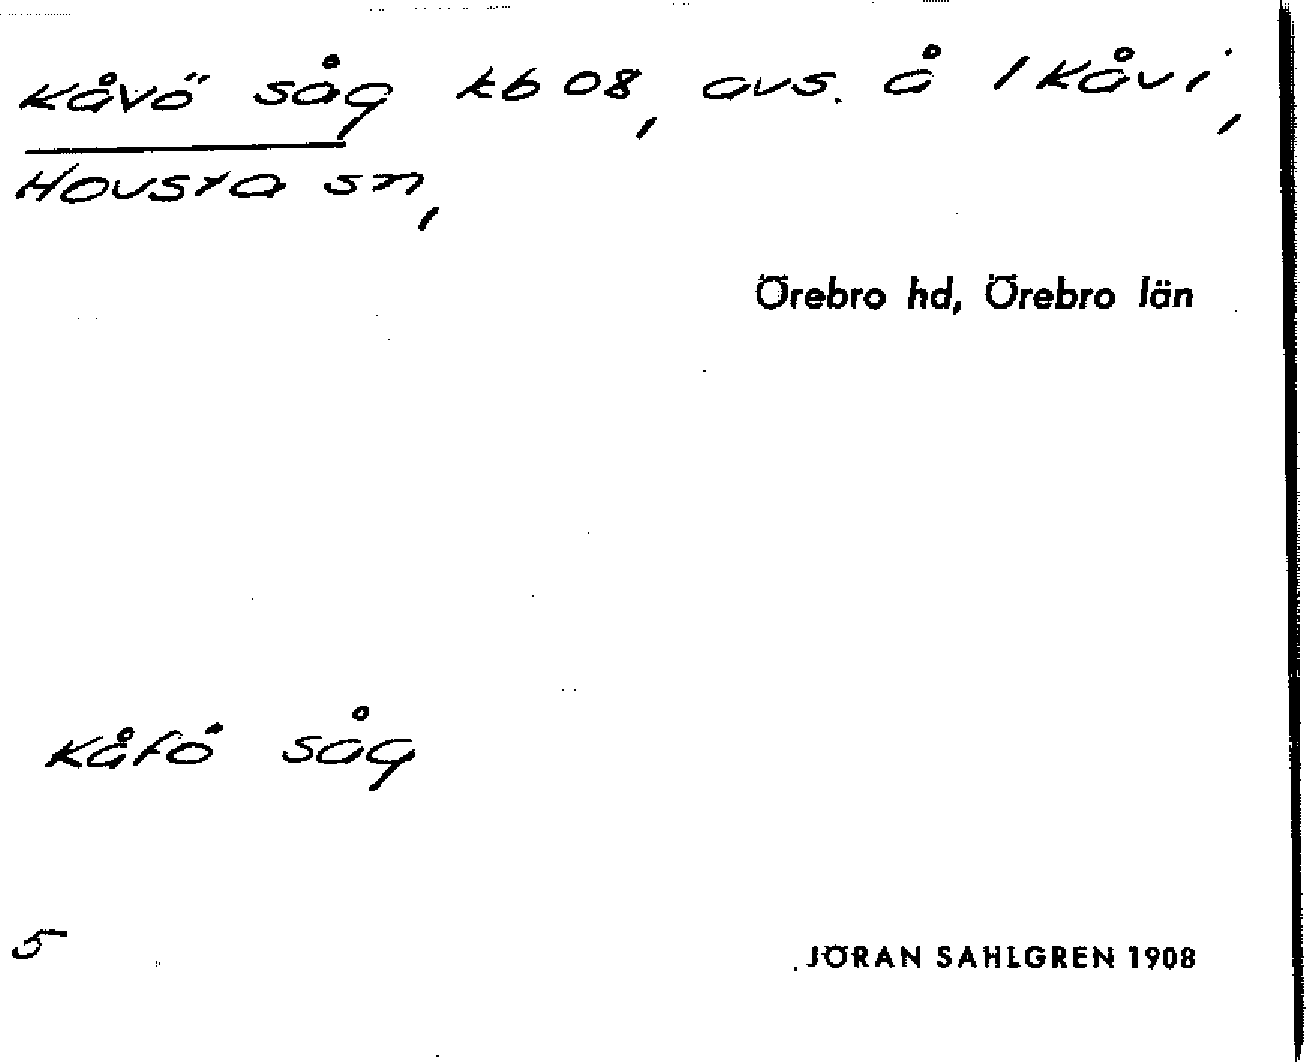 Kåvö såg kb 08, avs. å 1 Kåvi,
Hovsta sn,
Örebro hd, Örebro län
Kåfö såg
5
JÖRAN SAHLGREN 1908